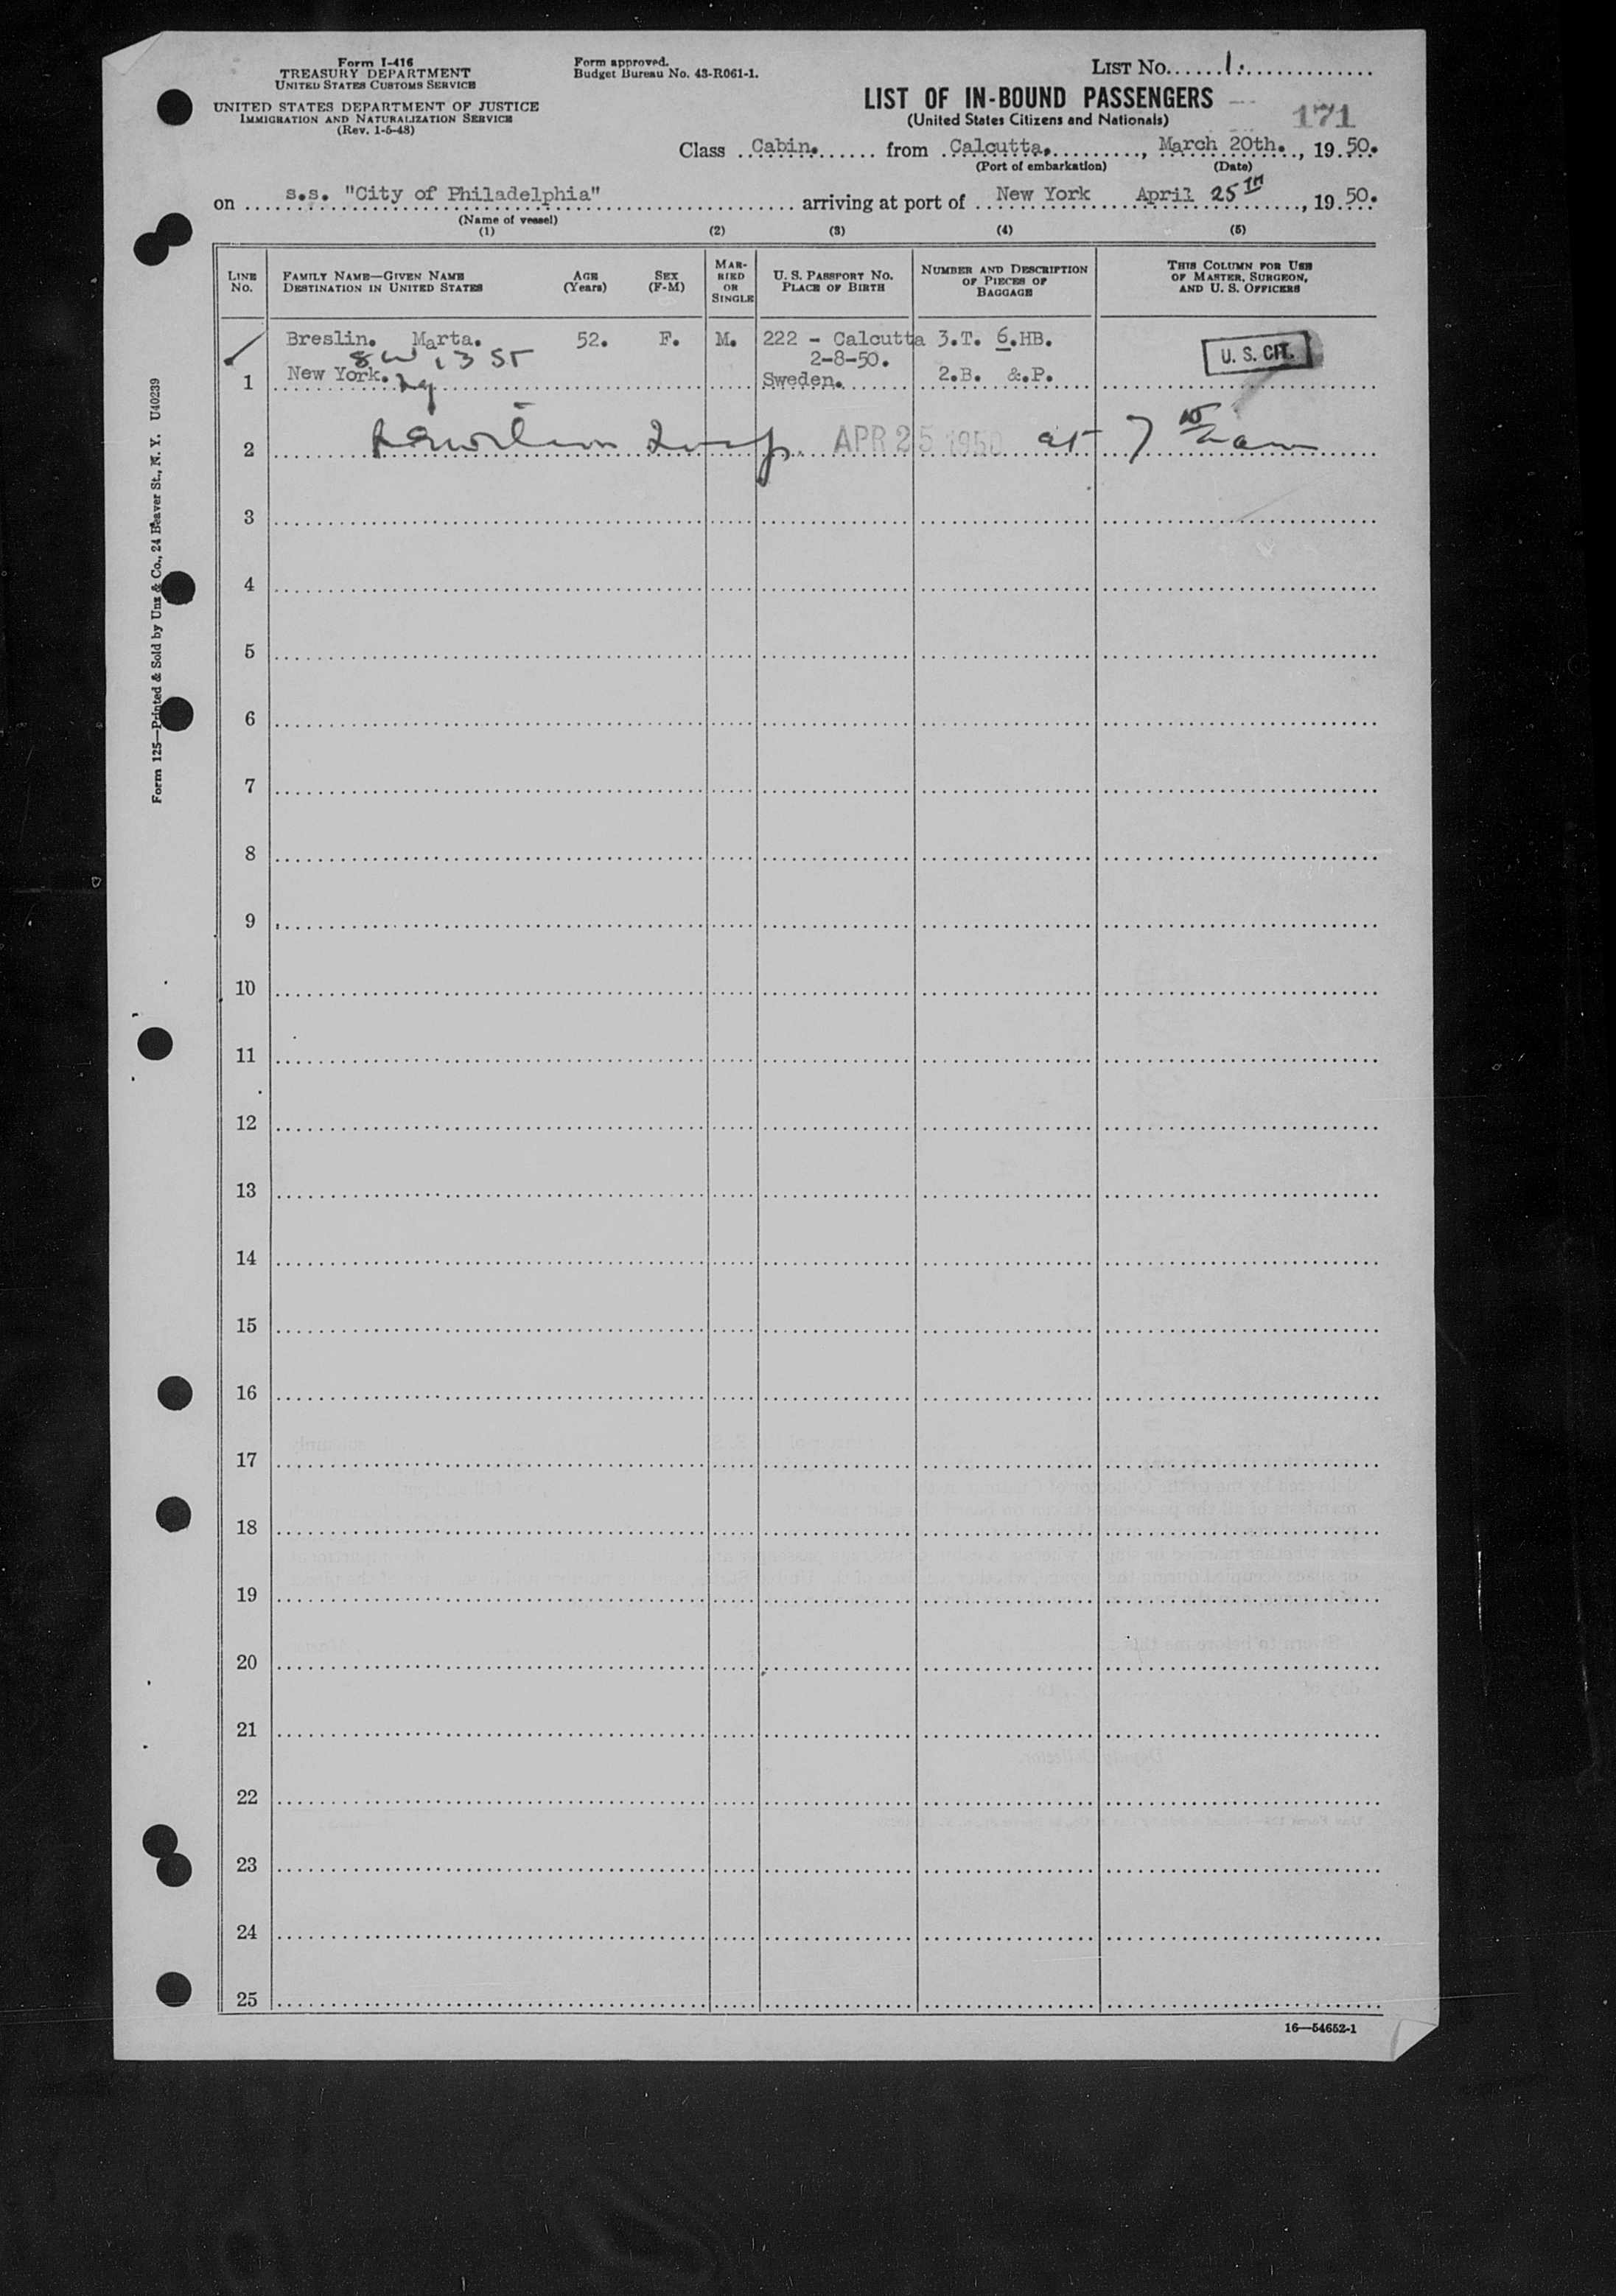 Form I-416
TREASURY DEPARTMENT
UNITED STATES CUSTOMS SERVICE
UNITED STATES DEPARTMENT OF JUSTICE
IMMIGRATION AND NATURALIZATION SERVICE
(Rev. 1-5-48)
Form approved.
Budget Bureau No. 43-R061-1.
LIST NO. 1.
LIST OF IN-BOUND PASSENGERS
(United States Citizens and Nationals)
171
Class Cabin. from Calcutta, March 20th., 19 50.
(Port of embarkation) (Date)
on s.s. "City of Philadelphia" arriving at port of New York April 25th, 19 50.
(Name of vessel)
(1) (2) (3) (4) (5)
LINE NO.
FAMILY NAME—GIVEN NAME
DESTINATION IN UNITED STATES
AGE (Years)
SEX (F-M)
MARRIED OR SINGLE
U. S. PASSPORT NO.
PLACE OF BIRTH
NUMBER AND DESCRIPTION OF PIECES OF BAGGAGE
THIS COLUMN FOR USE OF MASTER, SURGEON, AND U. S. OFFICERS
Breslin. Marta. 52. F. M. 222 - Calcutta 3.T. 6.HB.
8 W 13 ST 2-8-50. U. S. CIT.
1 New York. Ny Sweden. 2.B. &.P.
2 APR 25 1950 at 7
3
4
5
6
7
8
9
10
11
12
13
14
15
16
17
18
19
20
21
22
23
24
25
16—54652-1
Form 125—Printed & Sold by Unz & Co., 24 Beaver St., N. Y. U40239